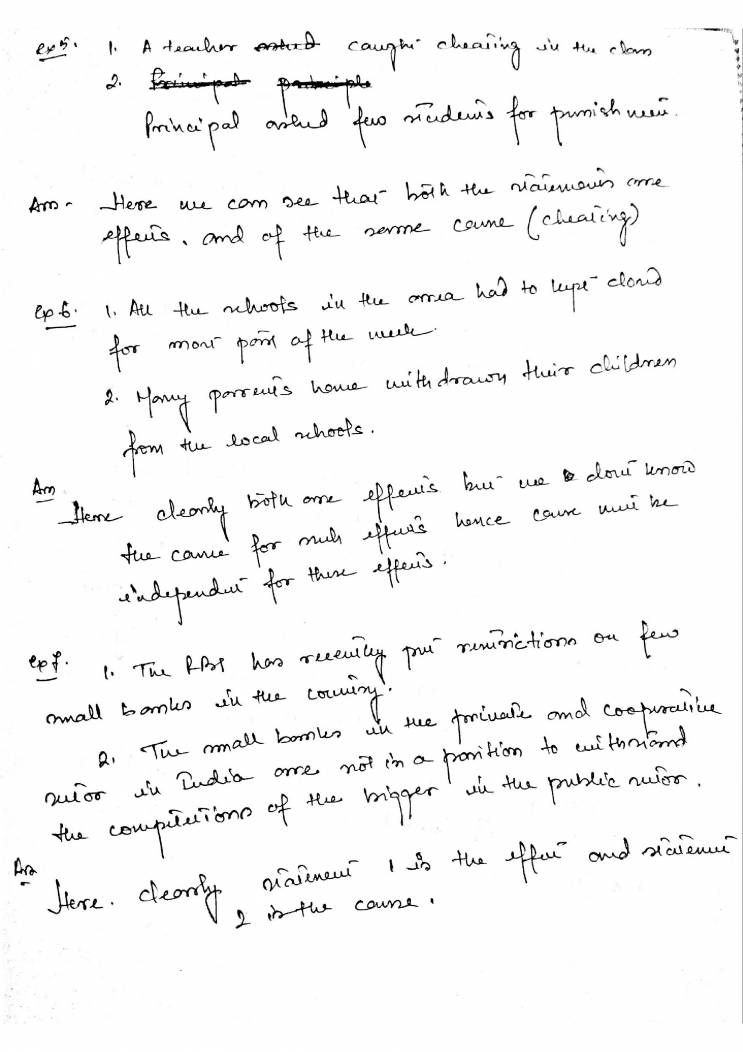 ex5. 1. A teacher asked caught cheating in the class
2. Principal principle
Principal asked few students for punishment.
Ans - Here we can see that both the statements are
effects, and of the same cause (cheating)
ex6. 1. All the schools in the area had to kept closed
for most part of the week.
2. Many parents have withdrawn their children
from the local schools.
Ans
Here clearly both are effects but we don't know
the cause for such effects hence cause must be
independent for these effects.
ex7. 1. The RBI has recently put restrictions on few
small banks in the country.
2. The small banks in the private and cooperative
sector in India are not in a position to withstand
the competitions of the bigger in the public sector.
Ans
Here. clearly statement 1 is the effect and statement
2 is the cause.